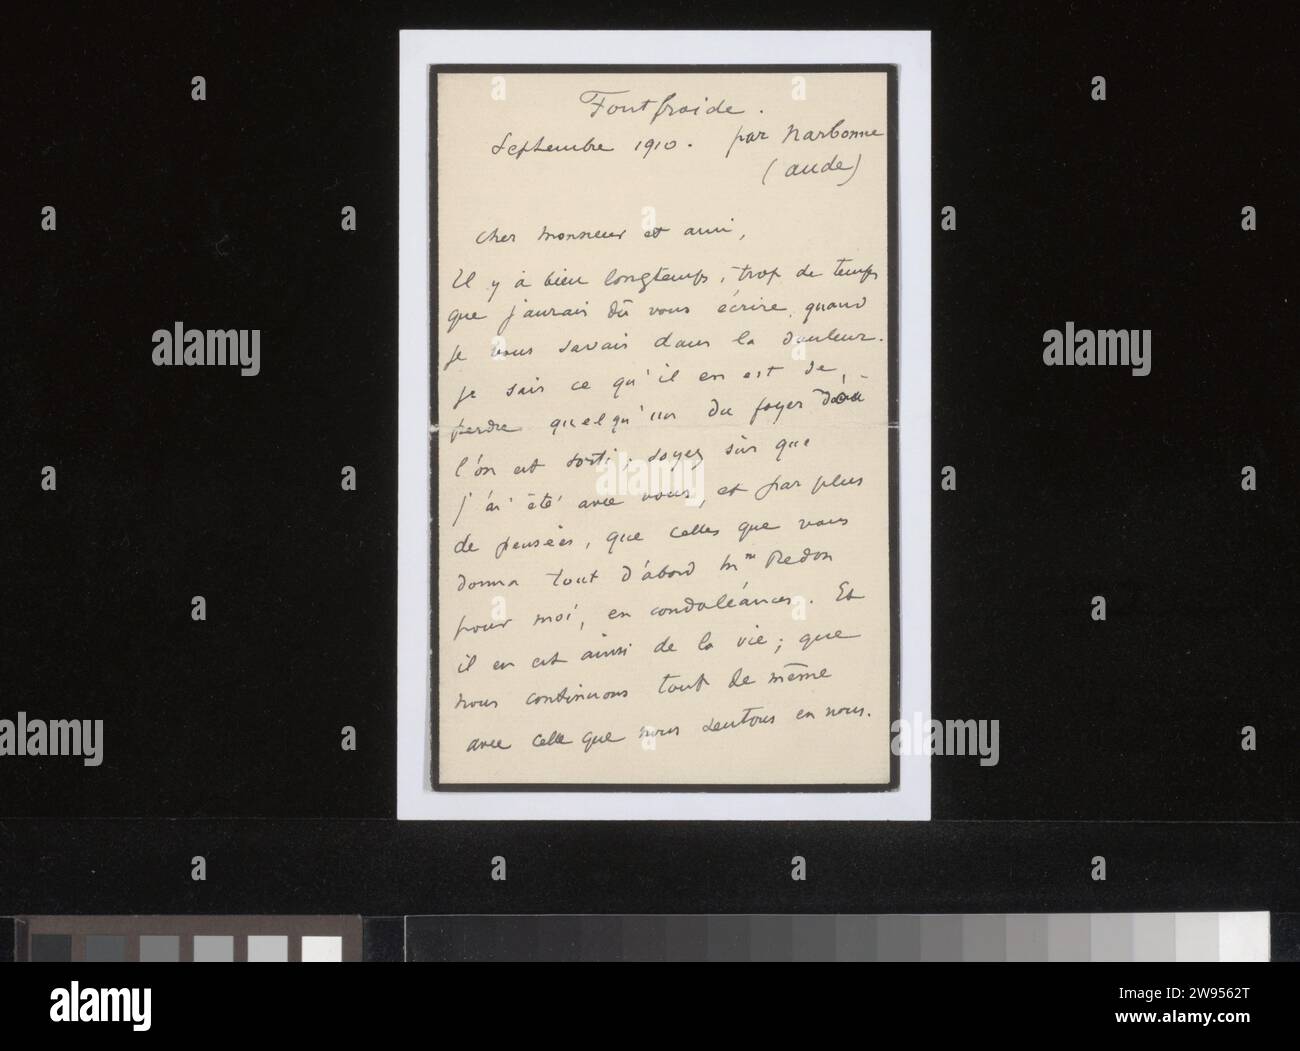 Fontfroide.
Septembre 1910. par Narbonne
(aude)
Cher Monsieur et ami,
Il y a bien longtemps, trop de temps
que j'aurais dû vous écrire, quand
je vous savais dans la douleur.
Je sais ce qu'il en est de
perdre quelqu'un du foyer d'où
l'on est sorti; soyez sûr que
j'ai été avec vous, et par plus
de pensées, que celles que vous
donna tout d'abord Mme Redon
pour moi, en condoléances. Et
il en est ainsi de la vie; que
nous continuons tout de même
avec celle que nous sentons en nous.
alamy
Image ID: 2W9562T
www.alamy.com